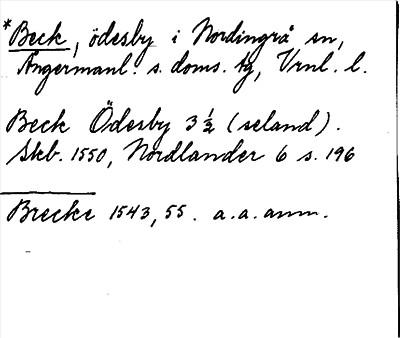 *Beck, ödesby i Nordingrå sn,
Ångermanl. s. doms. tg, Vrnl. l.
Beck Ödesby 3 ½ (seland).
Skb. 1550, Nordlander 6 s. 196
Brecke 1543, 55. a.a. anm.